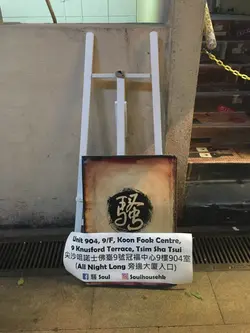 騷
Unit 904, 9/F, Koon Fook Centre,
9 Knutsford Terrace, Tsim Sha Tsui
尖沙咀諾士佛臺9號冠福中心9樓904室
(All Night Long 旁邊大廈入口)
騷 Soul
Soulhousehk